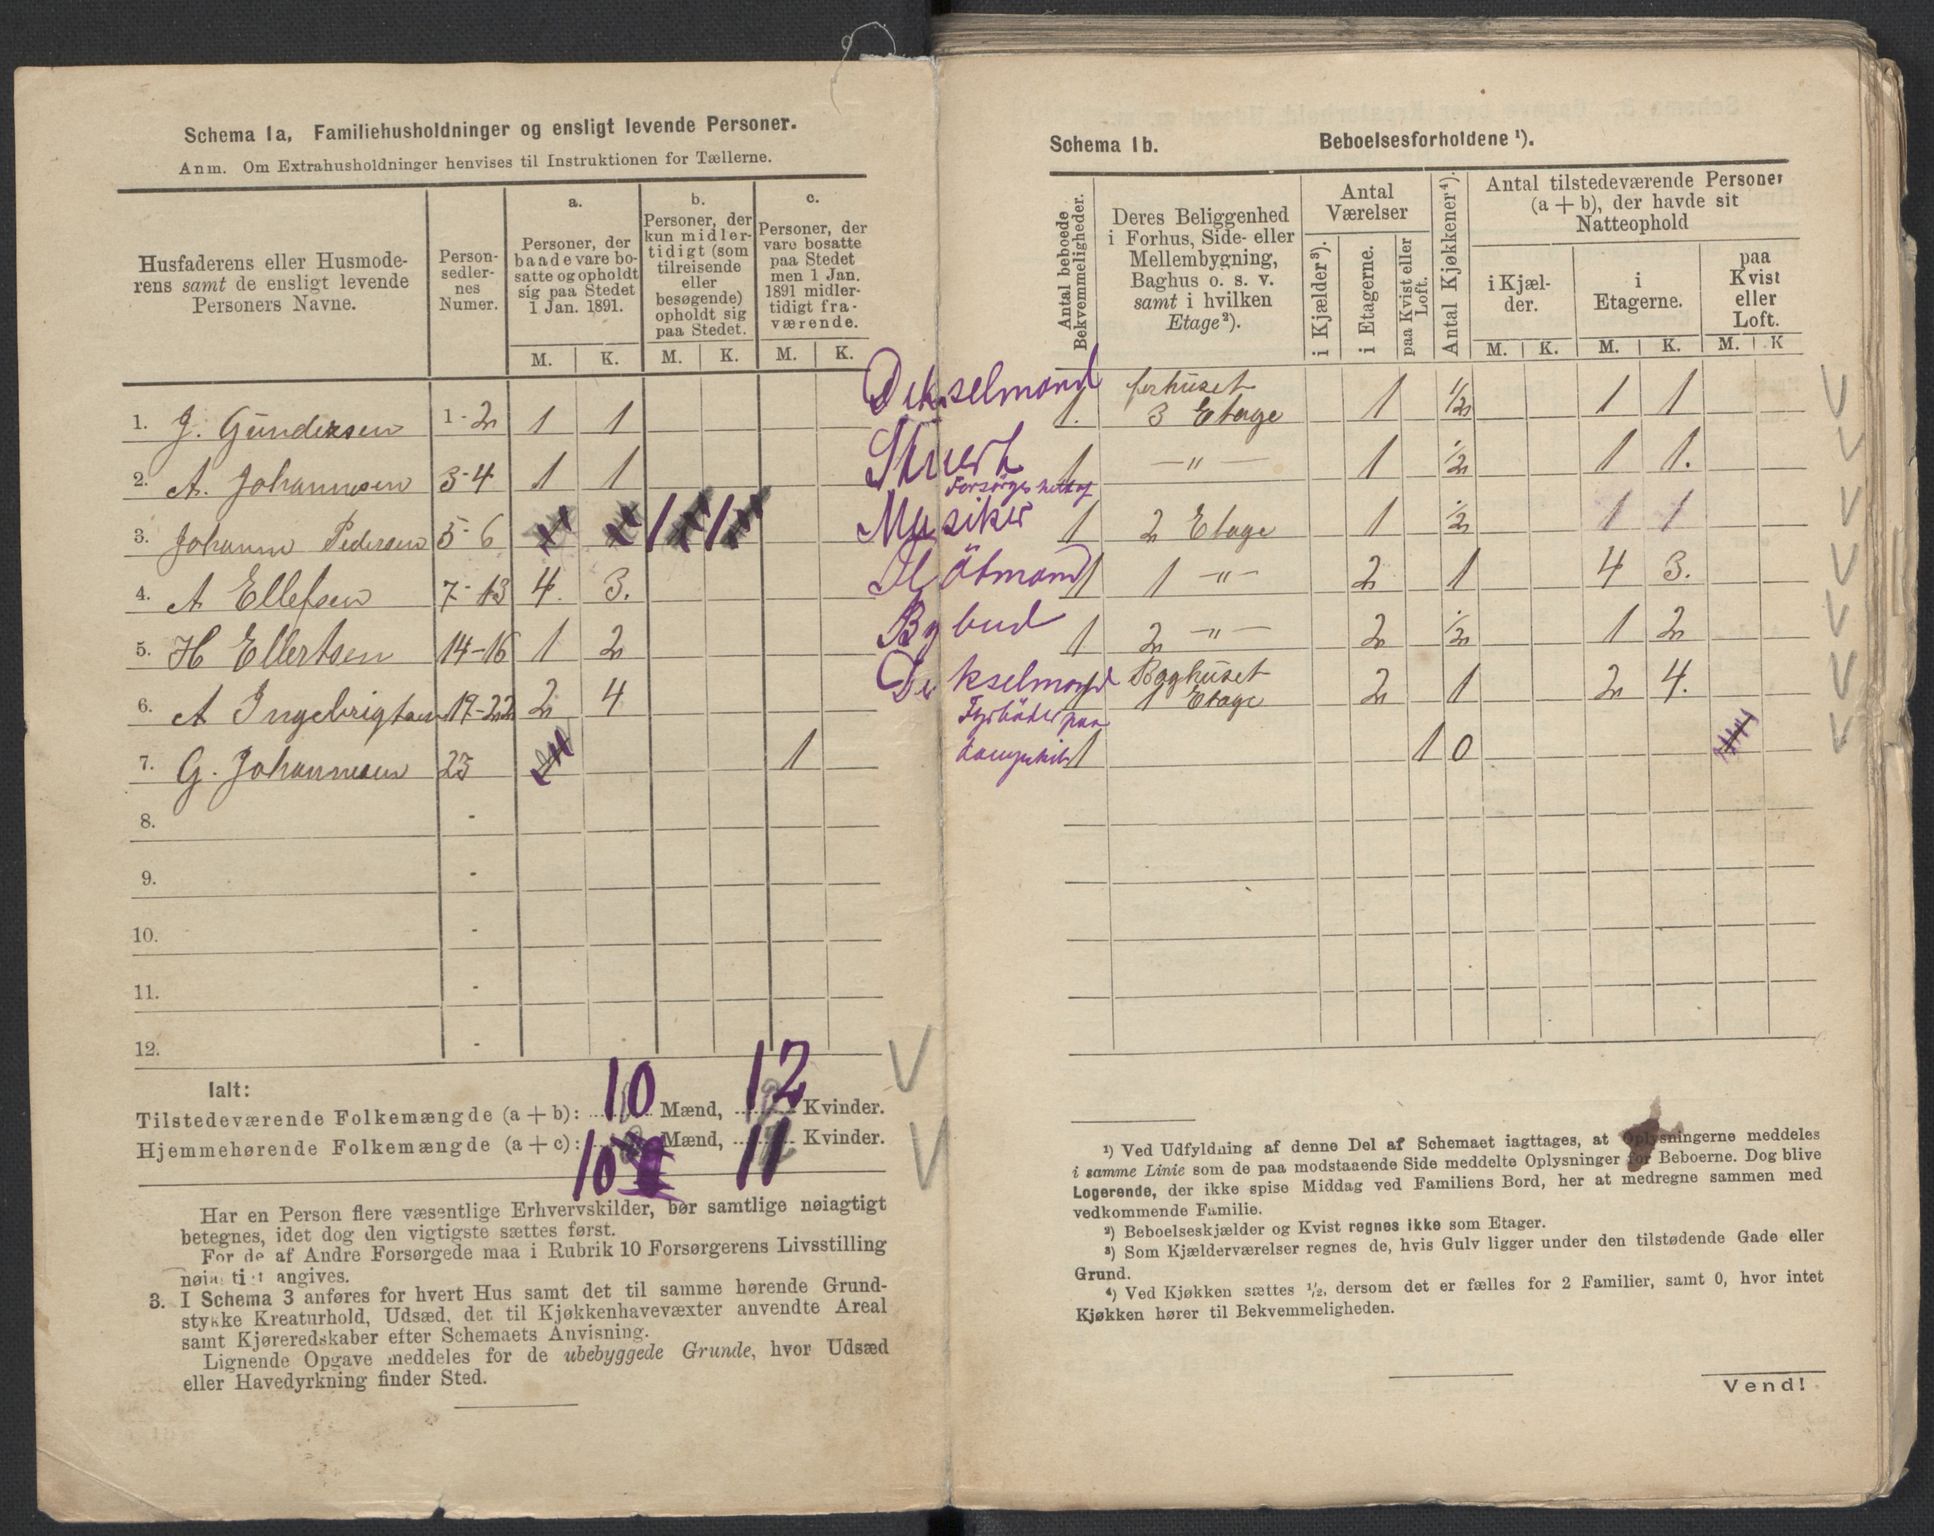 Schema 1a, Familiehusholdninger og ensligt levende Personer.
Anm. Om Extrahusholdninger henvises til Instruktionen for Tællerne.
Husfaderens eller Husmoderens samt de ensligt levende Personers Navne.
Person-sedlernes Numer.
a. Personer, der baade vare bosatte og opholdt sig paa Stedet 1 Jan. 1891.
b. Personer, der kun midlertidigt (som tilreisende eller besøgende) opholdt sig paa Stedet.
c. Personer, der vare bosatte paa Stedet men 1 Jan. 1891 midlertidigt fraværende.
M. K. M. K. M. K.
1. J. Gundersen 1-2 1 1
2. A. Johannesen 3-4 1 1
3. Johann Pedersen 5-6 1 1
4. A Ellefsen 7-13 4. 3.
5. H Ellertsen 14-16 1 2
6. A Ingebrigtsen 17-22 2 4
7. G. Johannesen 23 1
8. -
9. -
10. -
11. -
12. -
Ialt:
Tilstedeværende Folkemængde (a + b): 10 Mænd, 12 Kvinder.
Hjemmehørende Folkemængde (a + c): 10 Mænd, 11 Kvinder.
Har en Person flere væsentlige Erhvervskilder, bør samtlige nøiagtigt
betegnes, idet dog den vigtigste sættes først.
For de af Andre Forsørgede maa i Rubrik 10 Forsørgerens Livsstilling
nøiagtigt angives.
3. I Schema 3 anføres for hvert Hus samt det til samme hørende Grund-
stykke Kreaturhold, Udsæd, det til Kjøkkenhavevæxter anvendte Areal
samt Kjøreredskaber efter Schemaets Anvisning.
Lignende Opgave meddeles for de ubebyggede Grunde, hvor Udsæd
eller Havedyrkning finder Sted.
Schema 1b. Beboelsesforholdene ¹).
Antal beboede Bekvemmeligheder.
Deres Beliggenhed i Forhus, Side- eller Mellembygning, Baghus o. s. v. samt i hvilken Etage²).
Antal Værelser
i Kjælder³).
i Etagerne.
paa Kvist eller Loft.
Antal Kjøkkener⁴).
Antal tilstedeværende Personer (a + b), der havde sit Natteophold
i Kjælder.
i Etagerne.
paa Kvist eller Loft.
M. K. M. K. M. K
Dekselmand 1. forhuset 3 Etage 1 1/2 1 1
1 — " — 1 1/2 1 1.
Musiker 1 2 Etage 1 1/2 1 1
1 1 — " — 2 1 4 3.
Bybud 1 2 — " — 2 1/2 1 2
Dekselmand 1 Baghuset 1 Etage 2 1 2 4.
Fyrbøder paa
1 1 0
¹) Ved Udfyldning af denne Del af Schemaet iagttages, at Oplysningerne meddeles
i samme Linie som de paa modstaaende Side meddelte Oplysninger for Beboerne. Dog blive
Logerende, der ikke spise Middag ved Familiens Bord, her at medregne sammen med
vedkommende Familie.
²) Beboelseskjælder og Kvist regnes ikke som Etager.
³) Som Kjælderværelser regnes de, hvis Gulv ligger under den tilstødende Gade eller
Grund.
⁴) Ved Kjøkken sættes ½, dersom det er fælles for 2 Familier, samt 0, hvor intet
Kjøkken hører til Bekvemmeligheden.
Vend!